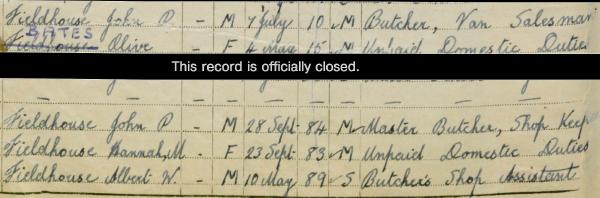 Fieldhouse John P - M 7 July 10 M Butcher, Van Salesman
BATES
Fieldhouse Olive - F 4 Mar 15 M Unpaid Domestic Duties
This record is officially closed.
- - - - - - -
Fieldhouse John P - M 28 Sept 84 M Master Butcher, Shop Keep
Fieldhouse Hannah M - F 23 Sept 83 M Unpaid Domestic Duties
Fieldhouse Albert W. - M 10 May 89 S Butcher's Shop Assistant